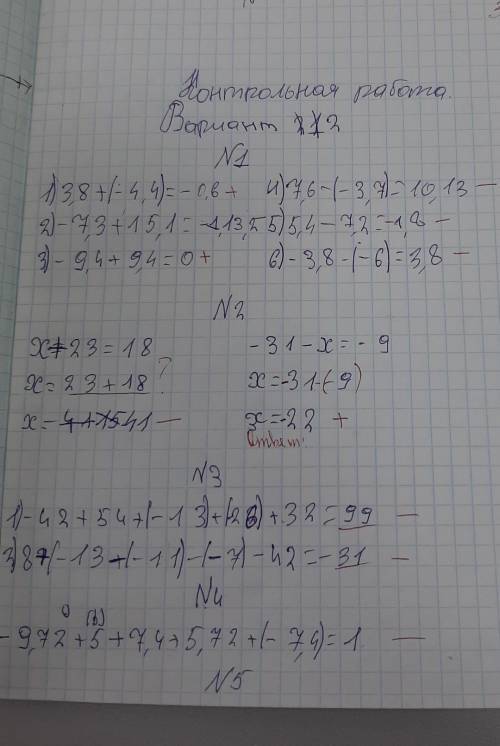 Контрольная работа.
Вариант 2
N1
1) 3,8 + (-4,4) = -0,6 + 4) 7,6 - (-3,7) = 10,13 -
2) -7,3 + 15,1 = 5) 5,4 - 7,2 = -1,8 -
3) -9,4 + 9,4 = 0 + 6) -3,8 - (-6) = 3,8 -
N2
x + 23 = 18 -31 - x = -9
x = 23 + 18 ? x = -31 - (-9)
x = 41 - x = -22 +
Ответ:
N3
1) -42 + 54 + (-13) + (-26) + 32 = 99 -
2) 8 + (-13 + (-11) - (-7) - 42 = -31 -
N4
-9,72 + 5 + 7,4 + 5,72 + (-7,4) = 1. -
N5